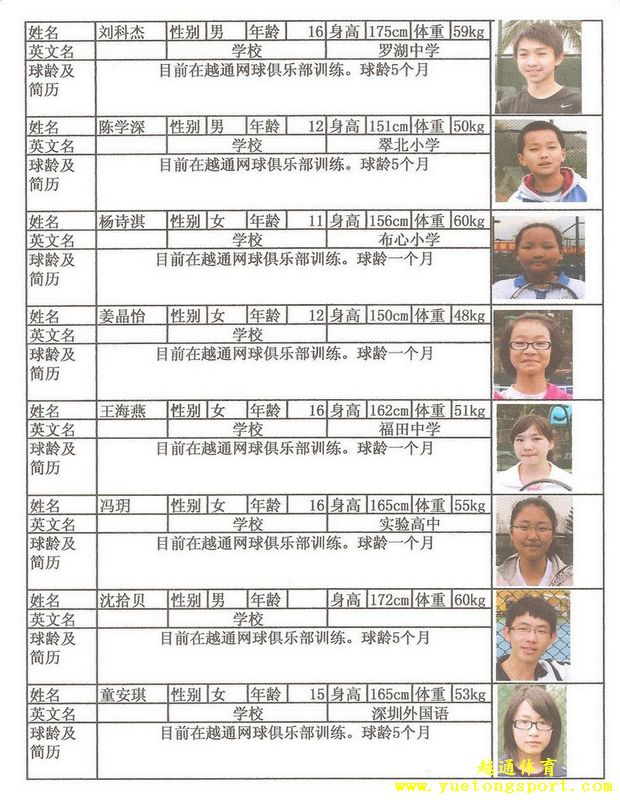 姓名 刘科杰 性别 男 年龄 16 身高 175cm 体重 59kg
英文名 学校 罗湖中学
球龄及 目前在越通网球俱乐部训练。球龄5个月
简历
姓名 陈学深 性别 男 年龄 12 身高 151cm 体重 50kg
英文名 学校 翠北小学
球龄及 目前在越通网球俱乐部训练。球龄5个月
简历
姓名 杨诗淇 性别 女 年龄 11 身高 156cm 体重 60kg
英文名 学校 布心小学
球龄及 目前在越通网球俱乐部训练。球龄一个月
简历
姓名 姜晶怡 性别 女 年龄 12 身高 150cm 体重 48kg
英文名 学校
球龄及 目前在越通网球俱乐部训练。球龄一个月
简历
姓名 王海燕 性别 女 年龄 16 身高 162cm 体重 51kg
英文名 学校 福田中学
球龄及 目前在越通网球俱乐部训练。球龄一个月
简历
姓名 冯玥 性别 女 年龄 16 身高 165cm 体重 55kg
英文名 学校 实验高中
球龄及 目前在越通网球俱乐部训练。球龄一个月
简历
姓名 沈拾贝 性别 男 年龄 身高 172cm 体重 60kg
英文名 学校
球龄及 目前在越通网球俱乐部训练。球龄5个月
简历
姓名 童安琪 性别 女 年龄 15 身高 165cm 体重 53kg
英文名 学校 深圳外国语
球龄及 目前在越通网球俱乐部训练。球龄5个月
简历
越通体育
www.yuetongsport.com